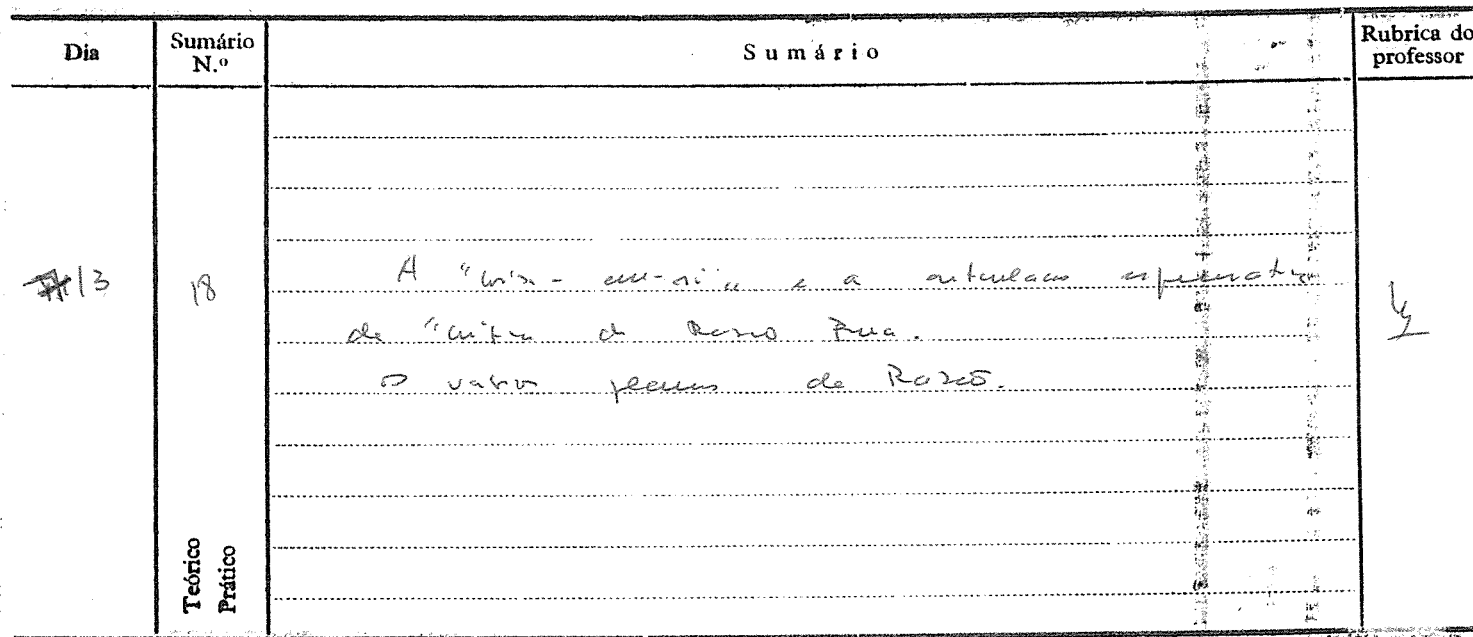 Dia
Sumário N.º
Sumário
Rubrica do professor
13
18
A "coisa-em-si" e a articulação
da "Crítica da Razão Pura.
Os vários planos da Razão.
Teórico
Prático